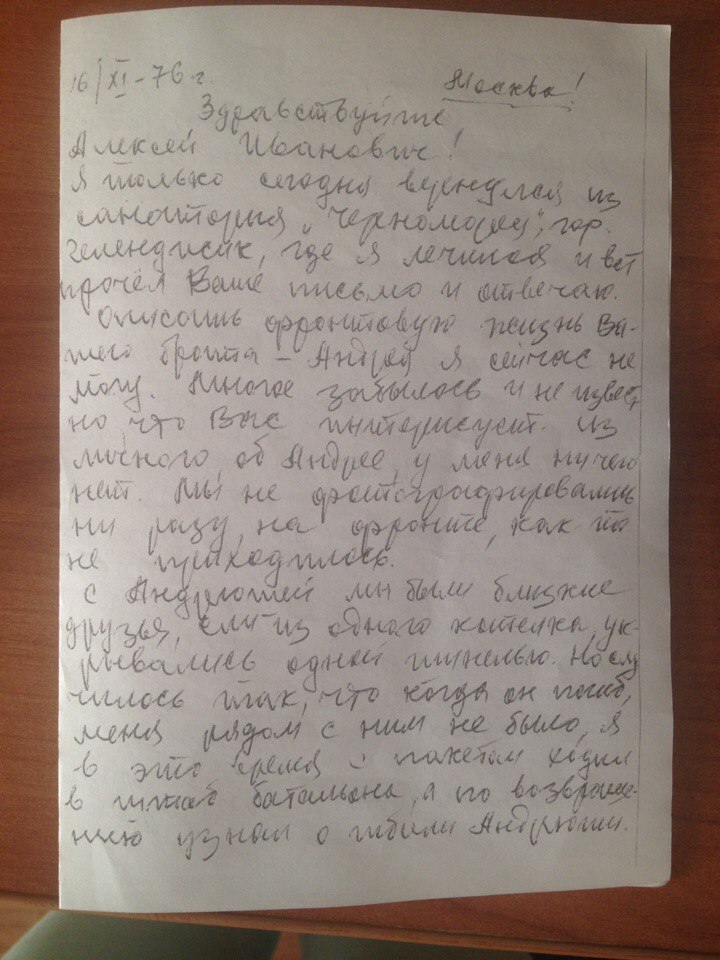 16/XI-76 г. Москва!
Здравствуйте
Алексей Иванович!
Я только сегодня вернулся из
санатория „Черноморец", гор.
Геленджик, где я лечился и вот
прочёл Ваше письмо и отвечаю.
Описать фронтовую жизнь Ва-
шего брата – Андрея я сейчас не
могу. Многое забылось и не извест
но что Вас интерисует. Из
личного об Андрее, у меня ничего
нет. Мы не фотографировались
ни разу, на фронте, как то
не приходилось.
С Андрюшей мы были близкие
друзья, ели из одного котелка, ук-
рывались одной шинелью. Но слу
чилось так, что когда он погиб,
меня рядом с ним не было, я
в это время с пакетом ходил
в штаб батальона, а по возвраще-
нию узнал о гибели Андрюши.